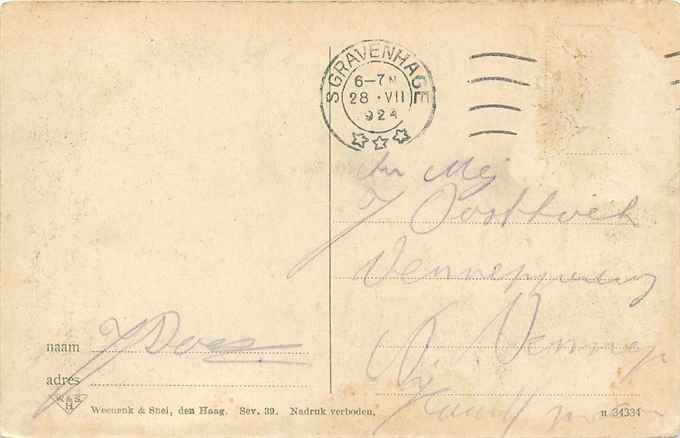 S GRAVENHAGE
6-7N
28 · VII
924
Mej
J Oosthoek
Vennep
N. Vennep
naam J Does
adres
W & S
H
Weenenk & Snel, den Haag. Sev. 39. Nadruk verboden.
11 34334